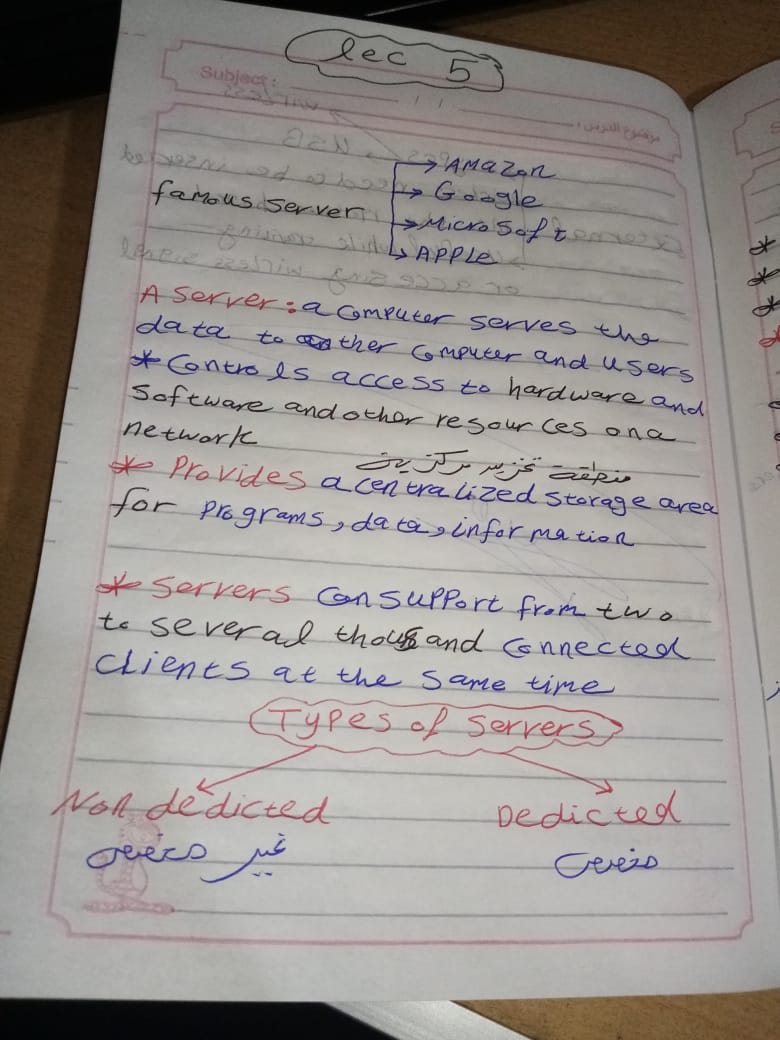 lec 5
Subject:
موضوع الدرس:
famous server
AMazon
Google
MicroSoft
APPLe
A Server: a computer serves the
data to other computer and users
* Controls access to hardware and
Software and other resources on a
network
منطقة تخزين مركزية
* Provides a centralized storage area
for programs, data, information
* Servers can support from two
to several thousand connected
clients at the same time
Types of servers
Non dedicted
Dedicted
غير مخصص
مخصص